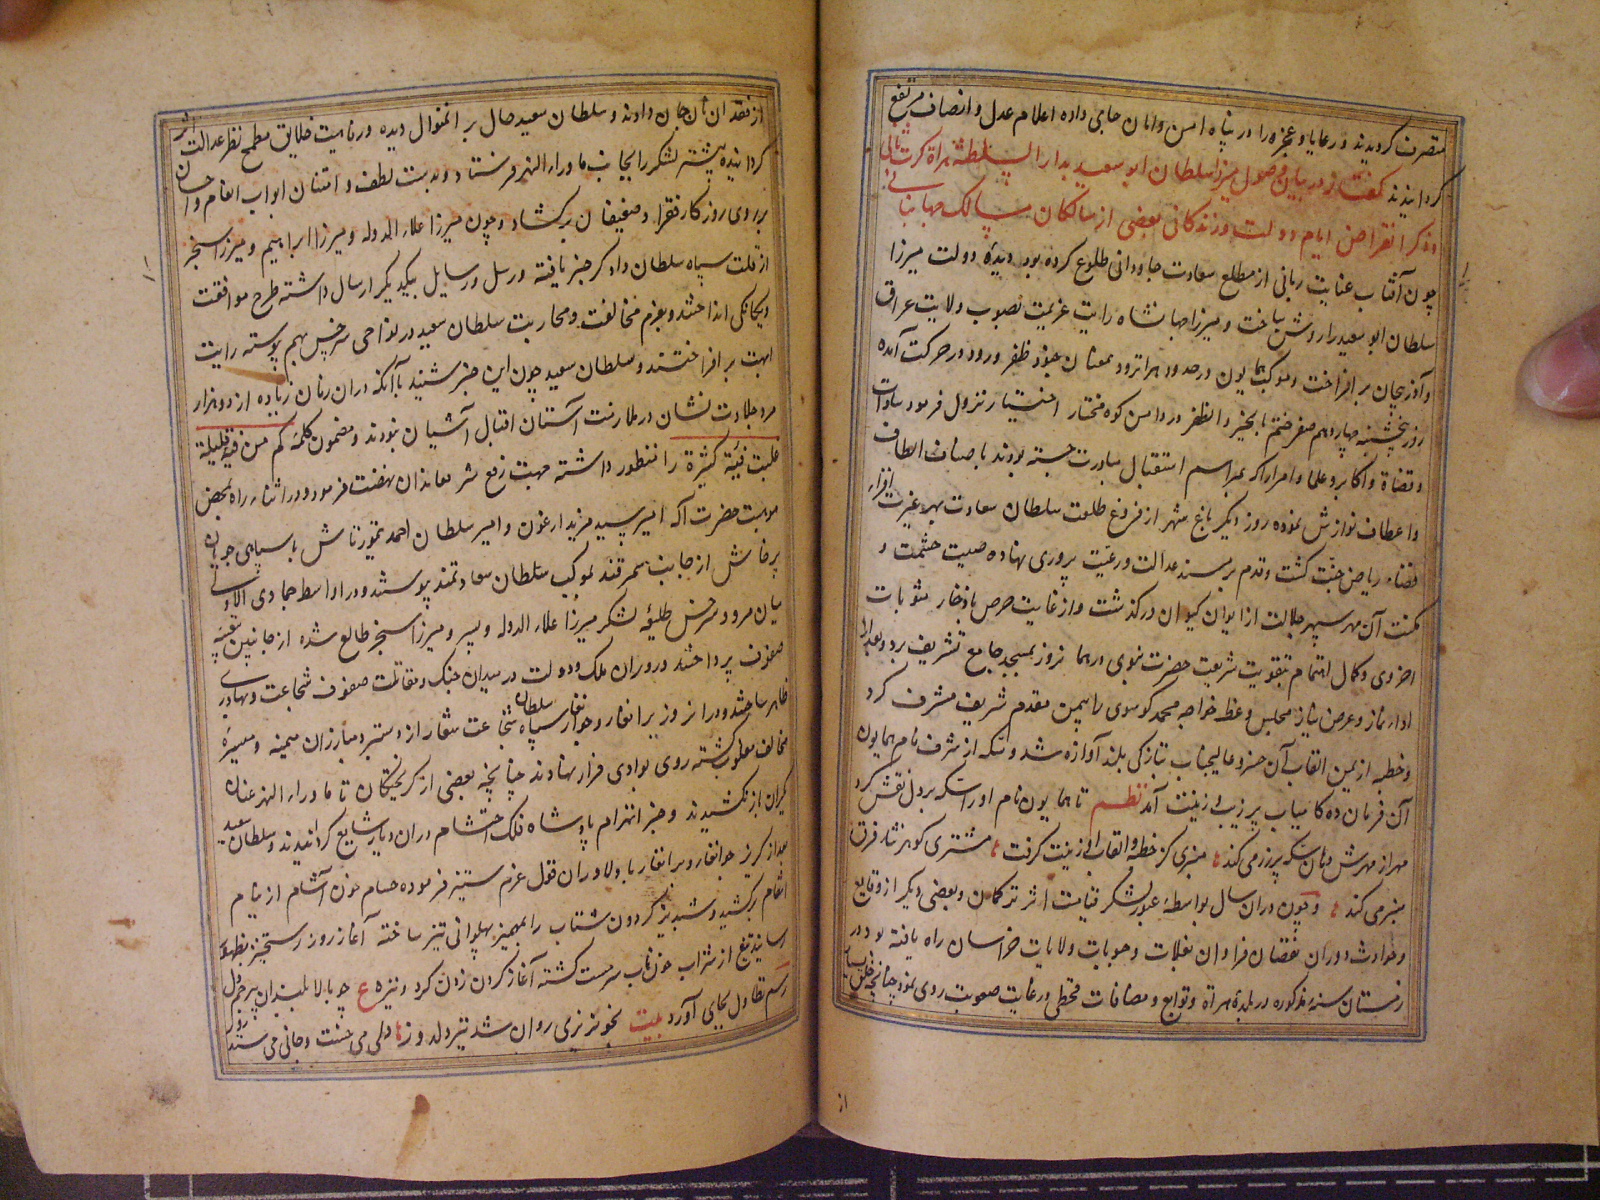 متصرف گردیدند و رعایا و عجزه را در پناه امن و امان جای داده اعلام عدل و انصاف مرتفع
گردانیدند گفتار در بیان وصول میرزا سلطان ابو سعید بدار السلطنه هراة کرت ثانی
و ذکر انقراض ایام دولت و زندگانی بعضی از سالکان مسالک جهانبانی
چون آفتاب عنایت ربانی از مطلع سعادت جاودانی طلوع کرده بود دیدهٔ دولت میرزا
سلطان ابو سعید را روشن ساخت و میرزا جهانشاه رایت عزیمت بصوب ولایت عراق
و آذربیجان برافراخت و موکب همایون در حدود هراترود بمعنان جنود ظفر ورود در حرکت آمده
روز پنجشنبه چهاردهم صفر ختم بالخیر و الظفر در دامن کوه مختار اختیار نزول فرمود سادات
و قضاة و اکابر و علما و امرا را که بمراسم استقبال مبادرت جسته بودند باصناف الطاف
و اعطاف نوازش نموده روز دیگر باغ شهر از فروغ طلعت سلطان سعادت بهر غیرت افزای
فضاء ریاض جنت گشت و قدم بر مسند عدالت و رعیت پروری نهاده صیت حشمت و
مکنت آن مهر سپهر جلالت از ایوان کیوان درگذشت و از غایت حرص باذخار مثوبات
اخروی و کمال اهتمام بتقویت شریعت حضرت نبوی در همان روز بمسجد جامع تشریف برد و بعد از
اداء نماز و عرض نیاز مجلس وعظ خواجه محمد کوسوی را بیمن مقدم شریف مشرف کرد
و خطبه از یمن القاب آن خسرو عالیجناب بتازگی بلند آوازه شد و سکه از شرف نام همایون
آن فرمان ده کامیاب پر زیب و زینت آمد نظم تا همایون نام او را سکه بر دل نقش کرد
مهر از مهرش دهان سکه پر زر می کند منبری کز خطبه و القاب او زینت گرفت مشتری گوهر نثار فرق
منبر می کند و چون در آن سال بواسطهٔ عبور لشکر قیامت اثر ترکمان و بعضی دیگر از وقایع
و حوادث دوران نقصان فراوان بغلات و حبوبات ولایات خراسان راه یافته بود در
زمستان سنهٔ مذکوره در بلدهٔ هراة و توابع و مضافات قحطی در غایت صعوبت روی نمود چنانچه خلق بسیار
از
از فقدان نان جان دادند و سلطان سعید حال بر آن منوال دیده و رفاهیت خلایق مطمح نظر عدالت اثر
گردانیده بیشتر لشکر را بجانب ماوراء النهر فرستاد و بدست لطف و امتنان ابواب انعام و احسان
بر روی روزگار فقرا و ضعیفان برگشاد و چون میرزا علاء الدوله و میرزا ابراهیم و میرزا سنجر
از قلت سپاه سلطان دادگر خبر یافته و رسل و رسایل بیکدیگر ارسال داشته طرح موافقت
و یگانگی انداختند و بعزم مخالفت و محاربت سلطان سعید در نواحی سرخس بهم پیوسته رایت
ابهت برافراختند و سلطان سعید چون این خبر شنید با آنکه در آن زمان زیاده از دو هزار
مرد جلادت نشان در ملازمت آستان اقبال آشیان نبودند و مضمون کلمهٔ کم من فئة قلیلة
غلبت فئة کثیرة را منظور داشته جهت رفع شر معاندان نهضت فرمود و در اثناء راه بمحض
موهبت حضرت اله امیر سید مزید ارغون و امیر سلطان احمد تیمورتاش با سپاهی جویان
پرخاش از جانب سمرقند بموکب سلطان سعادتمند پیوستند و در اواسط جمادی الاولی
میان مرو و سرخس طلیعهٔ لشکر میرزا علاء الدوله و پسر و میرزا سنجر طالع شده از جانبین بتعبیه
صفوف پرداختند و دوران ملک و دولت در میدان جنک و مقاتلت صفوف شجاعت و بهادری
ظاهر ساختند و در آن روز برانغار و جوانغار سپاه سلطان شجاعت شعار از دستبرد مبارزان میمنه و میسرهٔ
مخالف مغلوب گشته روی بوادی فرار نهادند چنانچه بعضی از گریختگان تا ماوراء النهر عنان
گیران باز نکشیدند و خبر انهزام پادشاه فلک احتشام در آن دیار شایع گردانیدند و سلطان سعید
بعد از گریز جوانغار و برانغار با دلاوران قول عزم ستیز فرموده حسام خون آشام از نیام
انتقام برکشید و شبدیز گردون شتاب را بمهمیز پهلوانی تیز ساخته آغاز روز رستخیز بظهور
رسانید تیغ از شراب خون ناب سرمست گشته آغاز گردن زدن کرد و نیزه ع چو بالا بلندان پر خم دل
رسم تطاول بجای آورد بیت بخونریزی روان شد تیر دلدوز دلی می جست و جانی می ستد